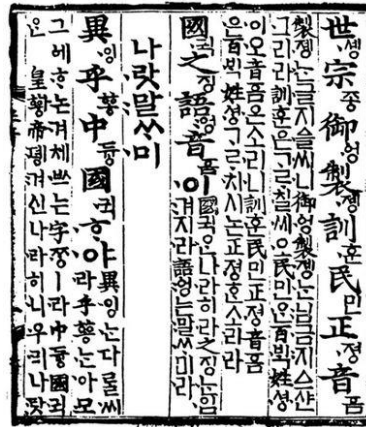 世솅宗종御엉製졩訓훈民민正졍音ᅙᅳᆷ
製졩는글지ᅀᅳᆯ씨니御엉製졩는님금지ᅀᅳ샨
그리라訓훈은ᄀᆞᄅᆞ칠씨오民민ᄋᆞᆫ百ᄇᆡᆨ姓셩
이오音ᅙᅳᆷ은소리니訓훈民민正졍音ᅙᅳᆷ
은百ᄇᆡᆨ姓셩ᄀᆞᄅᆞ치시논正졍ᄒᆞᆫ소리라
國귁之징語ᅌᅥᆼ音ᅙᅳᆷ이
國귁ᄋᆞᆫ나라히라之징는입
겨지라語ᅌᅥᆼ는말ᄊᆞ미라
나랏말ᄊᆞ미
異잉乎ᅘᅩᆼ中듕國귁ᄒᆞ야
異잉는다ᄅᆞᆯ씨
라乎ᅘᅩᆼ는아모
그ᅌᅦᄒᆞ논겨체ᄡᅳ는字ᄍᆞᆼㅣ라中듕國귁
ᄋᆞᆫ皇ᅘᅪᆼ帝뎽겨신나라히니우리나랏